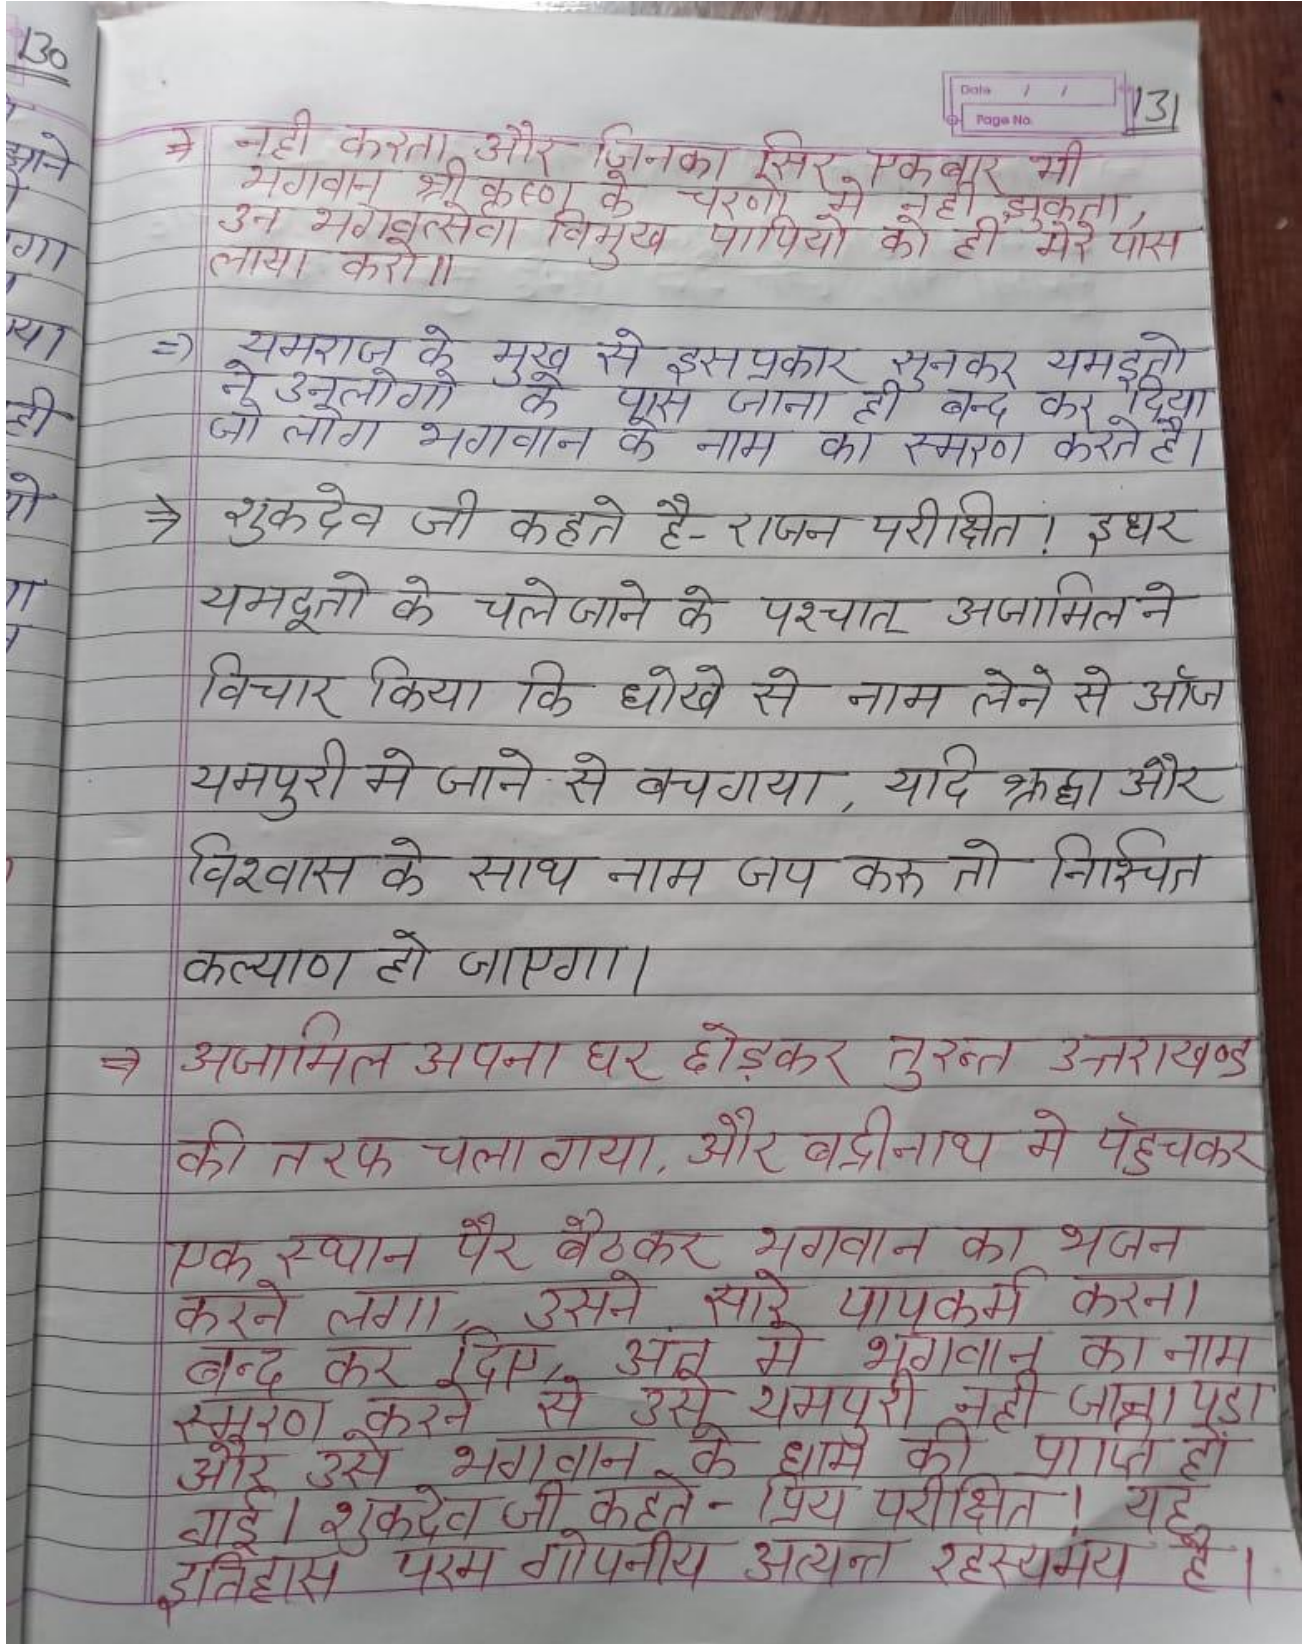 130
Date / /
Page No.
131
⇒ नही करता और जिनका सिर एक बार भी
भगवान श्री कृष्ण के चरणो मे नही झुकता,
उन भगवत्सेवा विमुख पापियो को ही मेरे पास
लाया करो॥
⇒ यमराज के मुख से इसप्रकार सुनकर यमदूतो
ने उनलोगो के पास जाना ही बन्द कर दिया
जो लोग भगवान के नाम का स्मरण करते है।
⇒ शुकदेव जी कहते है- राजन परीक्षित! इधर
यमदूतो के चलेजाने के पश्चात् अजामिल ने
विचार किया कि धोखे से नाम लेने से ऑज
यमपुरी मे जाने से बचगया, यदि श्रद्धा और
विश्वास के साथ नाम जप करु तो निश्चित
कल्याण हो जाएगा।
⇒ अजामिल अपना घर छोड़कर तुरन्त उत्तराखण्ड
की तरफ चला गया, और बद्रीनाथ मे पॅहुचकर
एक स्थान पैर बैठकर भगवान का भजन
करने लगा, उसने सारे पापकर्म करना
बन्द कर दिए, अंत मे भगवान का नाम
स्मरण करने से उसे यमपुरी नही जाना पड़ा
और उसे भगवान के धाम की प्राप्ति हो
गई। शुकदेव जी कहते - प्रिय परीक्षित! यह
इतिहास परम गोपनीय अत्यन्त रहस्यमय है।